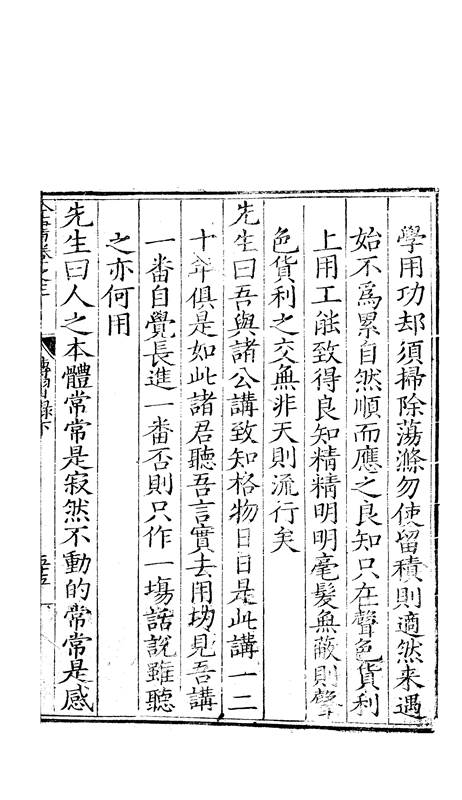 學用功却須掃除蕩滌勿使留積則適然来遇
始不爲累自然順而應之良知只在聲色貨利
上用工能致得良知精精明明毫髮無蔽則聲
色貨利之交無非天則流行矣
先生曰吾與諸公講致知格物日日是此講一二
十年俱是如此諸君聽吾言實去用功見吾講
一番自覺長進一番否則只作一塲話說雖聽
之亦何用
先生曰人之本體常常是寂然不動的常常是感
傳習錄下